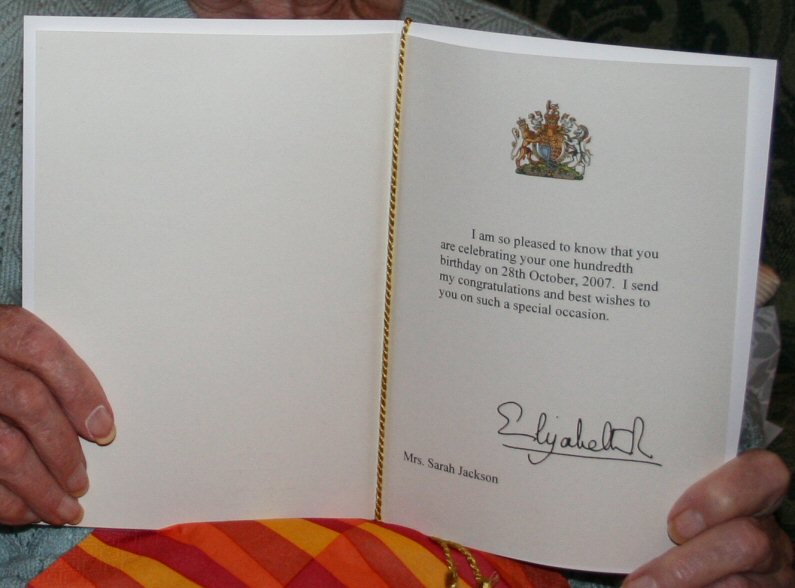 I am so pleased to know that you
are celebrating your one hundredth
birthday on 28th October, 2007. I send
my congratulations and best wishes to
you on such a special occasion.
Elizabeth R
Mrs. Sarah Jackson